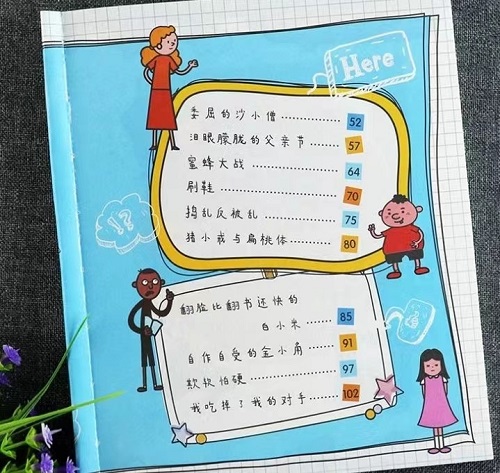 Here
委屈的沙小僧 52
泪眼朦胧的父亲节 57
蜜蜂大战 64
刷鞋 70
捣乱反被乱 75
猪小戒与扁桃体 80
!?
翻脸比翻书还快的
白小米 85
自作自受的金小角 91
欺软怕硬 97
我吃掉了我的对手 102